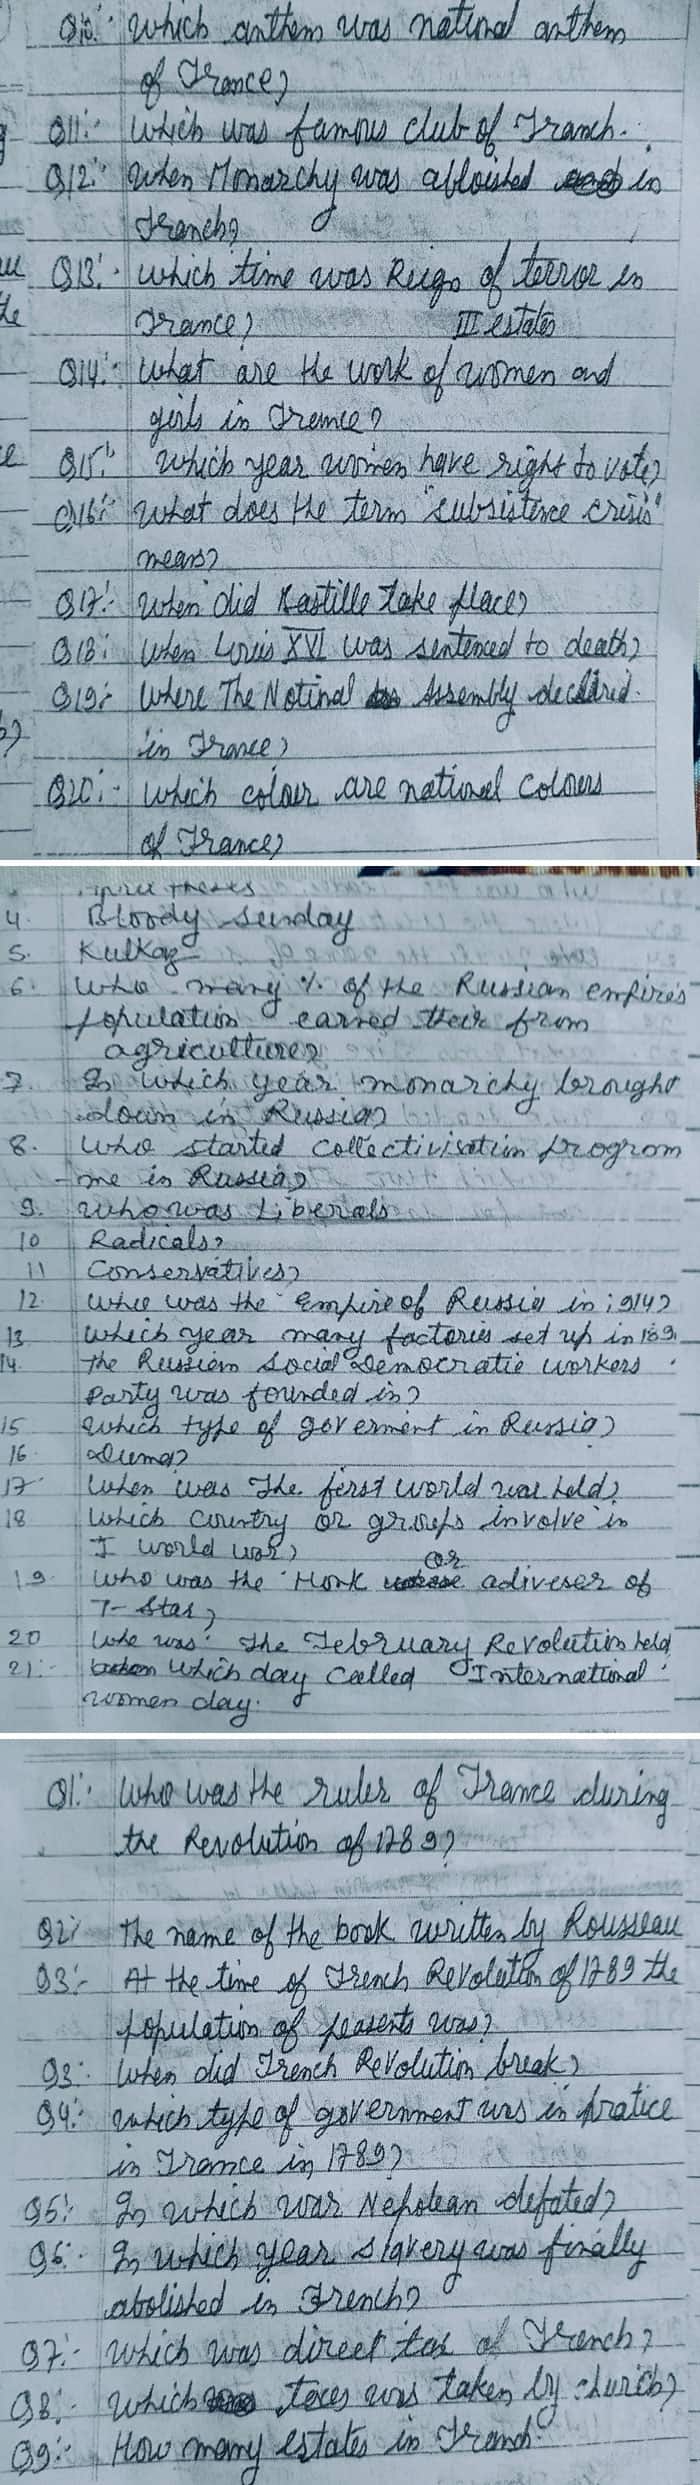 Q10:- Which anthem was national anthem
of France?
Q11:- Which was famous club of Franch.
Q12:- When Monarchy was abloished in
Franch?
Q13:- Which time was Reign of terror in
France?
III estates
Q14:- What are the work of women and
girls in France?
Q15:- Which year women have right to vote?
Q16:- What does the term "subsistence crisis"
means?
Q17:- When did Bastille take place?
Q18:- When Louis XVI was sentenced to death?
Q19:- Where The Notinal Assembly declired.
in France?
Q20:- Which colour are national colours
of France?
theses
4. Bloody Sunday
5. Kulkag
6. Who many % of the Russian empire's
population earned their from
agriculture?
7. In which year monarchy brought
down in Russia?
8. Who started collectivisation program
me in Russia?
9. Who was Liberals
10 Radicals?
11 Conservatives?
12. Who was the Empire of Russia in 1914?
13 Which year many factories set up in 189
14. The Russian Social Democratic workers
Party was founded in?
15 Which type of goverment in Russia?
16 Duma?
17 When was The first world war held?
18 Which country or groups involve in
I world war?
19. Who was the Monk or adiveser of
T-Star?
20 Who was The February Revolution held
21:- Which day called International
women day.
Q1:- Who was the ruler of France during
the Revolution of 1789?
Q2:- The name of the book written by Rousseau
Q3:- At the time of French Revolution of 1789 the
population of peasents was?
Q3:- When did French Revolution break?
Q4:- Which type of government was in pratice
in France in 1789?
Q5:- In which war Nepolean defated?
Q6:- In which year slavery was finally
abolished in French?
Q7:- Which was direct tax of French?
Q8:- Which taxes was taken by church?
Q9:- How many estates in Franch.